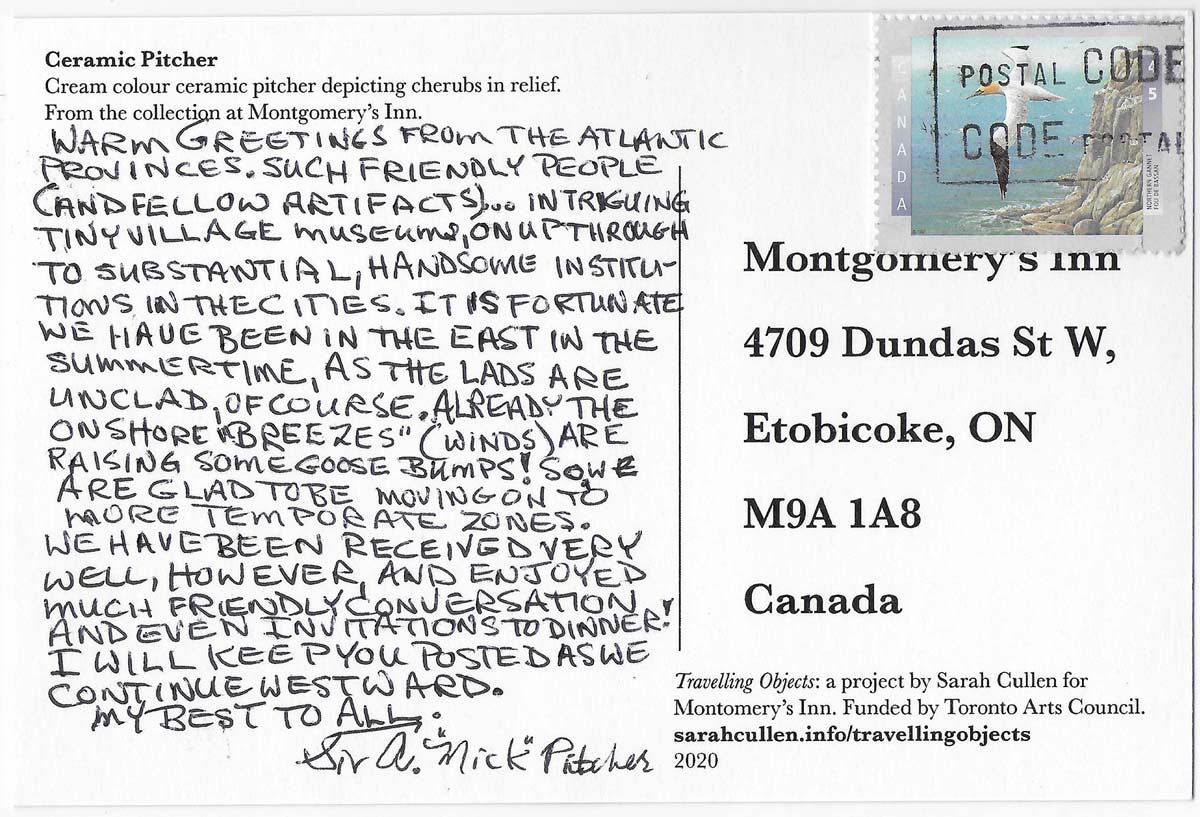 Ceramic Pitcher
Cream colour ceramic pitcher depicting cherubs in relief.
From the collection at Montgomery's Inn.
WARM GREETINGS FROM THE ATLANTIC
PROVINCES. SUCH FRIENDLY PEOPLE
(AND FELLOW ARTIFACTS)... INTRIGUING
TINY VILLAGE MUSEUMS, ON UP THROUGH
TO SUBSTANTIAL, HANDSOME INSTITU-
TIONS IN THE CITIES. IT IS FORTUNATE
WE HAVE BEEN IN THE EAST IN THE
SUMMERTIME, AS THE LADS ARE
UNCLAD, OF COURSE. ALREADY THE
ONSHORE "BREEZES" (WINDS) ARE
RAISING SOME GOOSE BUMPS! SO WE
ARE GLAD TO BE MOVING ON TO
MORE TEMPORATE ZONES.
WE HAVE BEEN RECEIVED VERY
WELL, HOWEVER, AND ENJOYED
MUCH FRIENDLY CONVERSATION,
AND EVEN INVITATIONS TO DINNER!
I WILL KEEP YOU POSTED AS WE
CONTINUE WESTWARD.
MY BEST TO ALL.
Sir A. "Mick" Pitcher
POSTAL CODE
CODE POSTAL
CANADA
45
NORTHERN GANNET
FOU DE BASSAN
Montgomery's Inn
4709 Dundas St W,
Etobicoke, ON
M9A 1A8
Canada
Travelling Objects: a project by Sarah Cullen for
Montomery's Inn. Funded by Toronto Arts Council.
sarahcullen.info/travellingobjects
2020